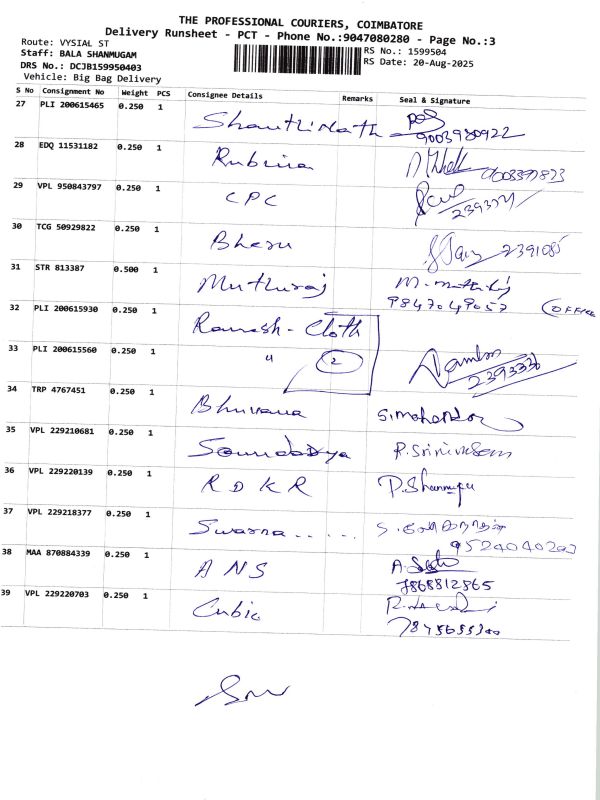 THE PROFESSIONAL COURIERS, COIMBATORE
Delivery Runsheet - PCT - Phone No.:9047080280 - Page No.:3
Route: VYSIAL ST
Staff: BALA SHANMUGAM
RS No.: 1599504
DRS No.: DCJB159950403
RS Date: 20-Aug-2025
Vehicle: Big Bag Delivery
S No Consignment No Weight PCS Consignee Details Remarks Seal & Signature
27 PLI 200615465 0.250 1 Shanthi Nath
9003980922
28 EDQ 11531182 0.250 1 Rubina
29 VPL 950843797 0.250 1 CPC
30 TCG 50929822 0.250 1 Bheru 2391085
31 STR 813387 0.500 1 Muthuraj
9847049057 (OFFICE
32 PLI 200615930 0.250 1 Ramesh - Cloth
33 PLI 200615560 0.250 1 " 2
2393330
34 TRP 4767451 0.250 1 Bhuvana
35 VPL 229210681 0.250 1 Soundarya R. Srinivasan
36 VPL 229220139 0.250 1 RDKR P. Shanmuga
37 VPL 229218377 0.250 1 Swarna ......
38 MAA 870884339 0.250 1 ANS
7868812865
39 VPL 229220703 0.250 1 Cubic